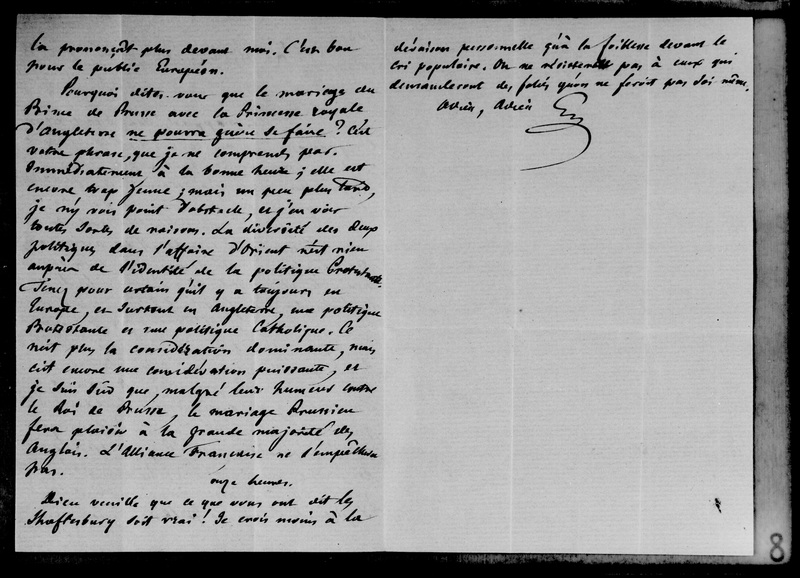 la prononçât plus devant moi. C'est bon
pour le public Européen.
Pourquoi dites-vous que le mariage du
Prince de Prusse avec la Princesse royale
d'Angleterre ne pourra guère se faire ? C'est
votre phrase, que je ne comprends pas.
Immédiatement à la bonne heure ; elle est
encore trop jeune ; mais un peu plus tard,
je n'y vois point d'obstacle, et j'en vois
toutes sortes de raisons. La diversité des deux
politiques dans l'affaire d'Orient n'est rien
auprès de l'identité de la politique Protestante.
Tenez pour certain qu'il y a toujours en
Europe, et surtout en Angleterre, une politique
Protestante et une politique Catholique. Ce
n'est plus la considération dominante, mais
c'est encore une considération puissante, et
je suis sûr que, malgré leur humeur contre
le Roi de Prusse, le mariage Prussien
fera plaisir à la grande majorité des
Anglais. L'Alliance Française ne l'empêchera
pas.
onze heures.
Dieu veuille que ce que vous ont dit les
Shaftesbury soit vrai ! Je crois moins à la
déraison personnelle qu'à la faiblesse devant le
cri populaire. On ne résistera pas à ceux qui
demanderont des folies qu'on ne feroit pas soi même.
Adieu, Adieu
8